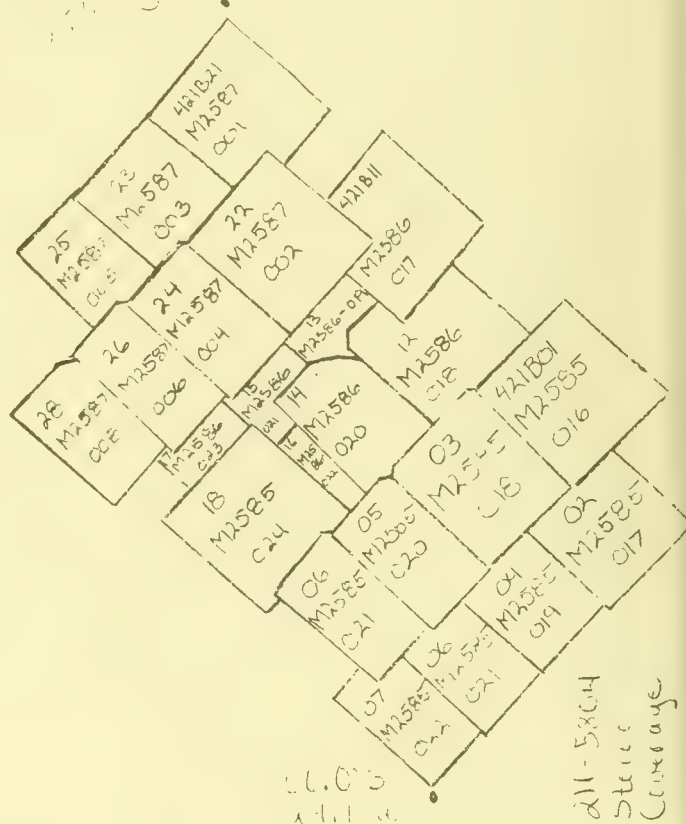 421B21
M2587
001
23
M2587
003
25
M2587
005
22
M2587
002
421B11
M2586
017
24
M2587
004
26
M2587
006
28
M2587
008
13
M2586-019
12
M2586
018
15
M2586
021
14
M2586
020
16
M25
86
022
17
M2586
023
18
M2585
024
421B01
M2585
016
03
M2585
018
02
M2585
017
05
M2585
020
04
M2585
019
06
M2585
021
06
M2585
021
07
M2585
022
Coverage